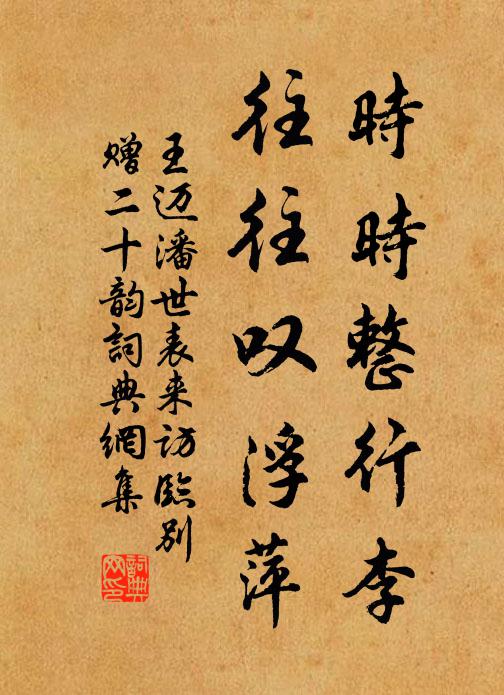 時時整行李
往往叹浮萍
王迈潘世表来访临别
赠二十韵詞典網集
詞典网印